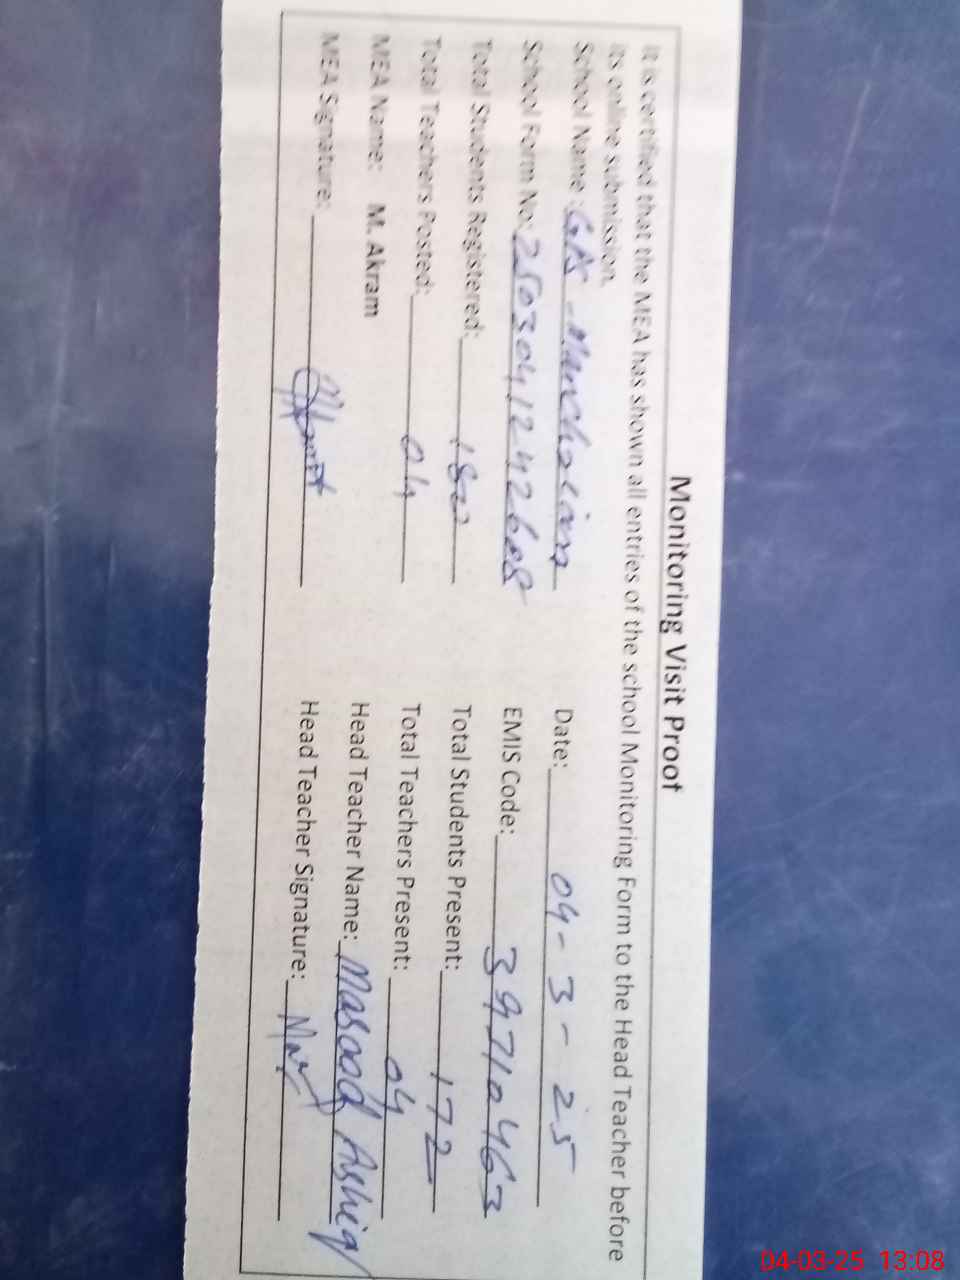 Monitoring Visit Proof
It is certified that the MEA has shown all entries of the school Monitoring Form to the Head Teacher before
its online submission.
School Name: Date: 04-3-25
School Form No: EMIS Code: 39710463
Total Students Registered: 180 Total Students Present: 172
Total Teachers Posted: 04 Total Teachers Present: 04
MEA Name: M. Akram Head Teacher Name: Masood Ashiq
MEA Signature: Head Teacher Signature:
04-03-25 13:08